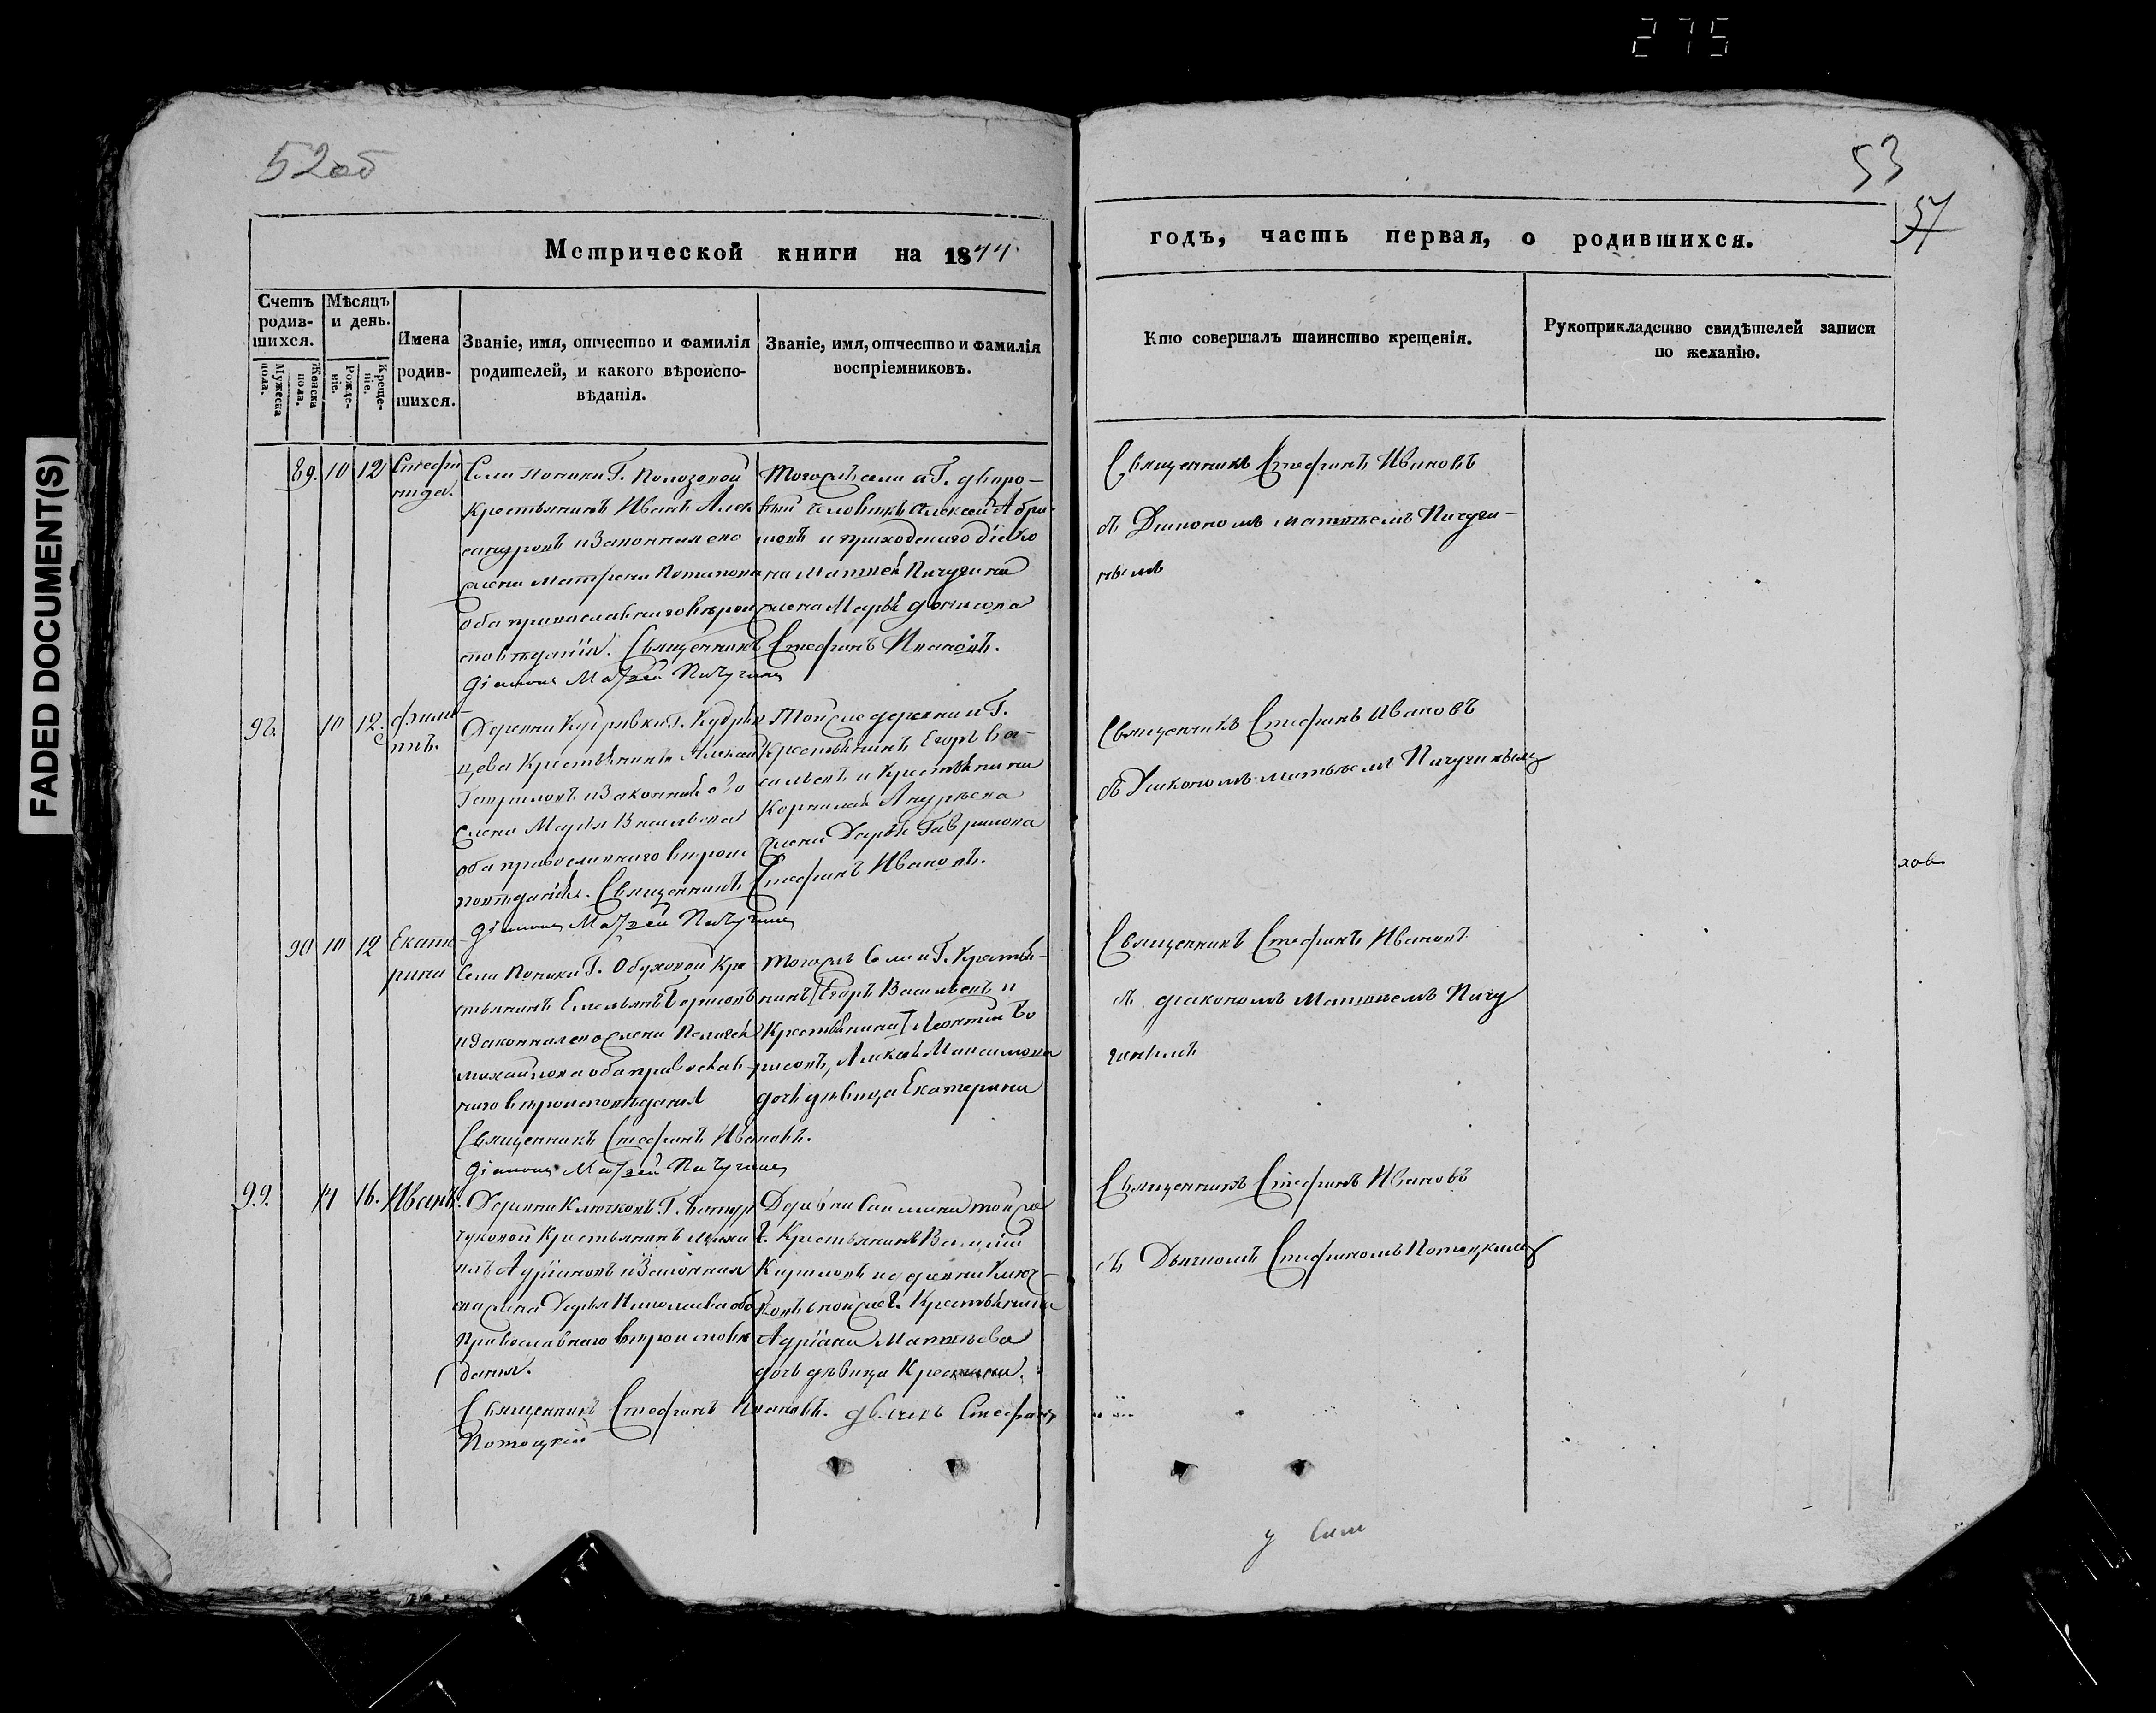 275
FADED DOCUMENT(S)
52об
53
57
Метрической книги на 1844
годъ, часть первая, о родившихся.
Счетъ родив-шихся.
Мѣсяцъ и день.
Мужеска пола.
Женска пола.
Рожде-ніе.
Креще-ніе.
Имена родив-шихся.
Званіе, имя, отчество и фамилія родителей, и какого вѣроиспо-вѣданія.
Званіе, имя, отчество и фамилія воспріемниковъ.
Кто совершалъ таинство крещенія.
Рукоприкладство свидѣтелей записи по желанію.
89. 10 12
Села Поники Г. Полозовой
крестьянинъ Иванъ Алек
сандровъ и законная его
жена Матрена Потапова
оба православнаго вѣрои
сповѣданія. Священникъ Стефанъ Ивановъ.
діаконъ Матѳей Пичугинъ
Тогожъ села и Г. дворо-
вый человѣкъ Алексей Абра
мовъ и приходскаго діако
на Матѳея Пичугина
жена Марья Денисова
Священникъ Стефанъ Ивановъ
съ Диакономъ Матѳеемъ Пичуги-
нымъ
98. 10 12. Фили-
ппъ.
Деревни Кудрявки Г. Кудрив
цева Крестьянинъ Алексей
Гавриловъ и законная его
жена Марья Васильева
оба православнаго вѣроис
повѣданія. Священникъ Стефанъ Ивановъ.
діаконъ Матѳей Пичугинъ
Той же деревни и Г.
Крестьянинъ Егоръ Ва-
сильевъ и крестьянина
Корнилая Андреева
жена Дарья Гаврилова
Священникъ Стефанъ Ивановъ
съ Диакономъ Матѳеемъ Пичугинымъ
90 10 12 Екате
рина
Села Поники Г. Обуховой Кре
стьянинъ Емельянъ Борисовъ
и законная его жена Пелагея
Михайлова оба православ-
наго вѣроисповѣданія
Священникъ Стефанъ Ивановъ.
діаконъ Матѳей Пичугинъ
Тогожъ Села и Г. Крестья-
нинъ Егоръ Васильевъ и
Крестьянина Леонтия Бо
рисовъ, Алексея Максимова
дочь дѣвица Екатерина
Священникъ Стефанъ Ивановъ
съ діакономъ Матѳеемъ Пичу
гинымъ
99. 14 16. Иванъ.
Деревни Клочковъ Г.
Крестьянинъ Миха
илъ Адріановъ и Законная
его жена Дарья Николаева оба
Православнаго вѣроисповѣ
данія.
Священникъ Стефанъ Ивановъ. дьячекъ Стефанъ
Потоцкій
Деревни той же
Г. Крестьянинъ Василій
Кириловъ и деревни Клоч-
ковъ той же Г. Крестьянина
Адріана Матѳеева
дочь дѣвица
Священникъ Стефанъ Ивановъ
съ Дьячкомъ Стефаномъ Потоцкимъ
хов